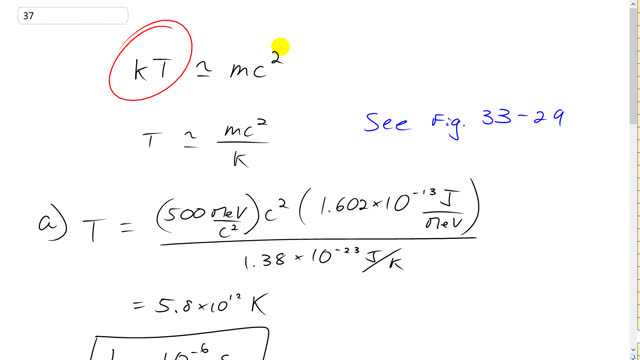 37
kT ≃ mc²
T ≃ mc²/k
See Fig. 33-29
a) T = (500 MeV/c²)c² (1.602×10⁻¹³ J/MeV) / 1.38×10⁻²³ J/K
= 5.8×10¹² K
10⁻⁶ s